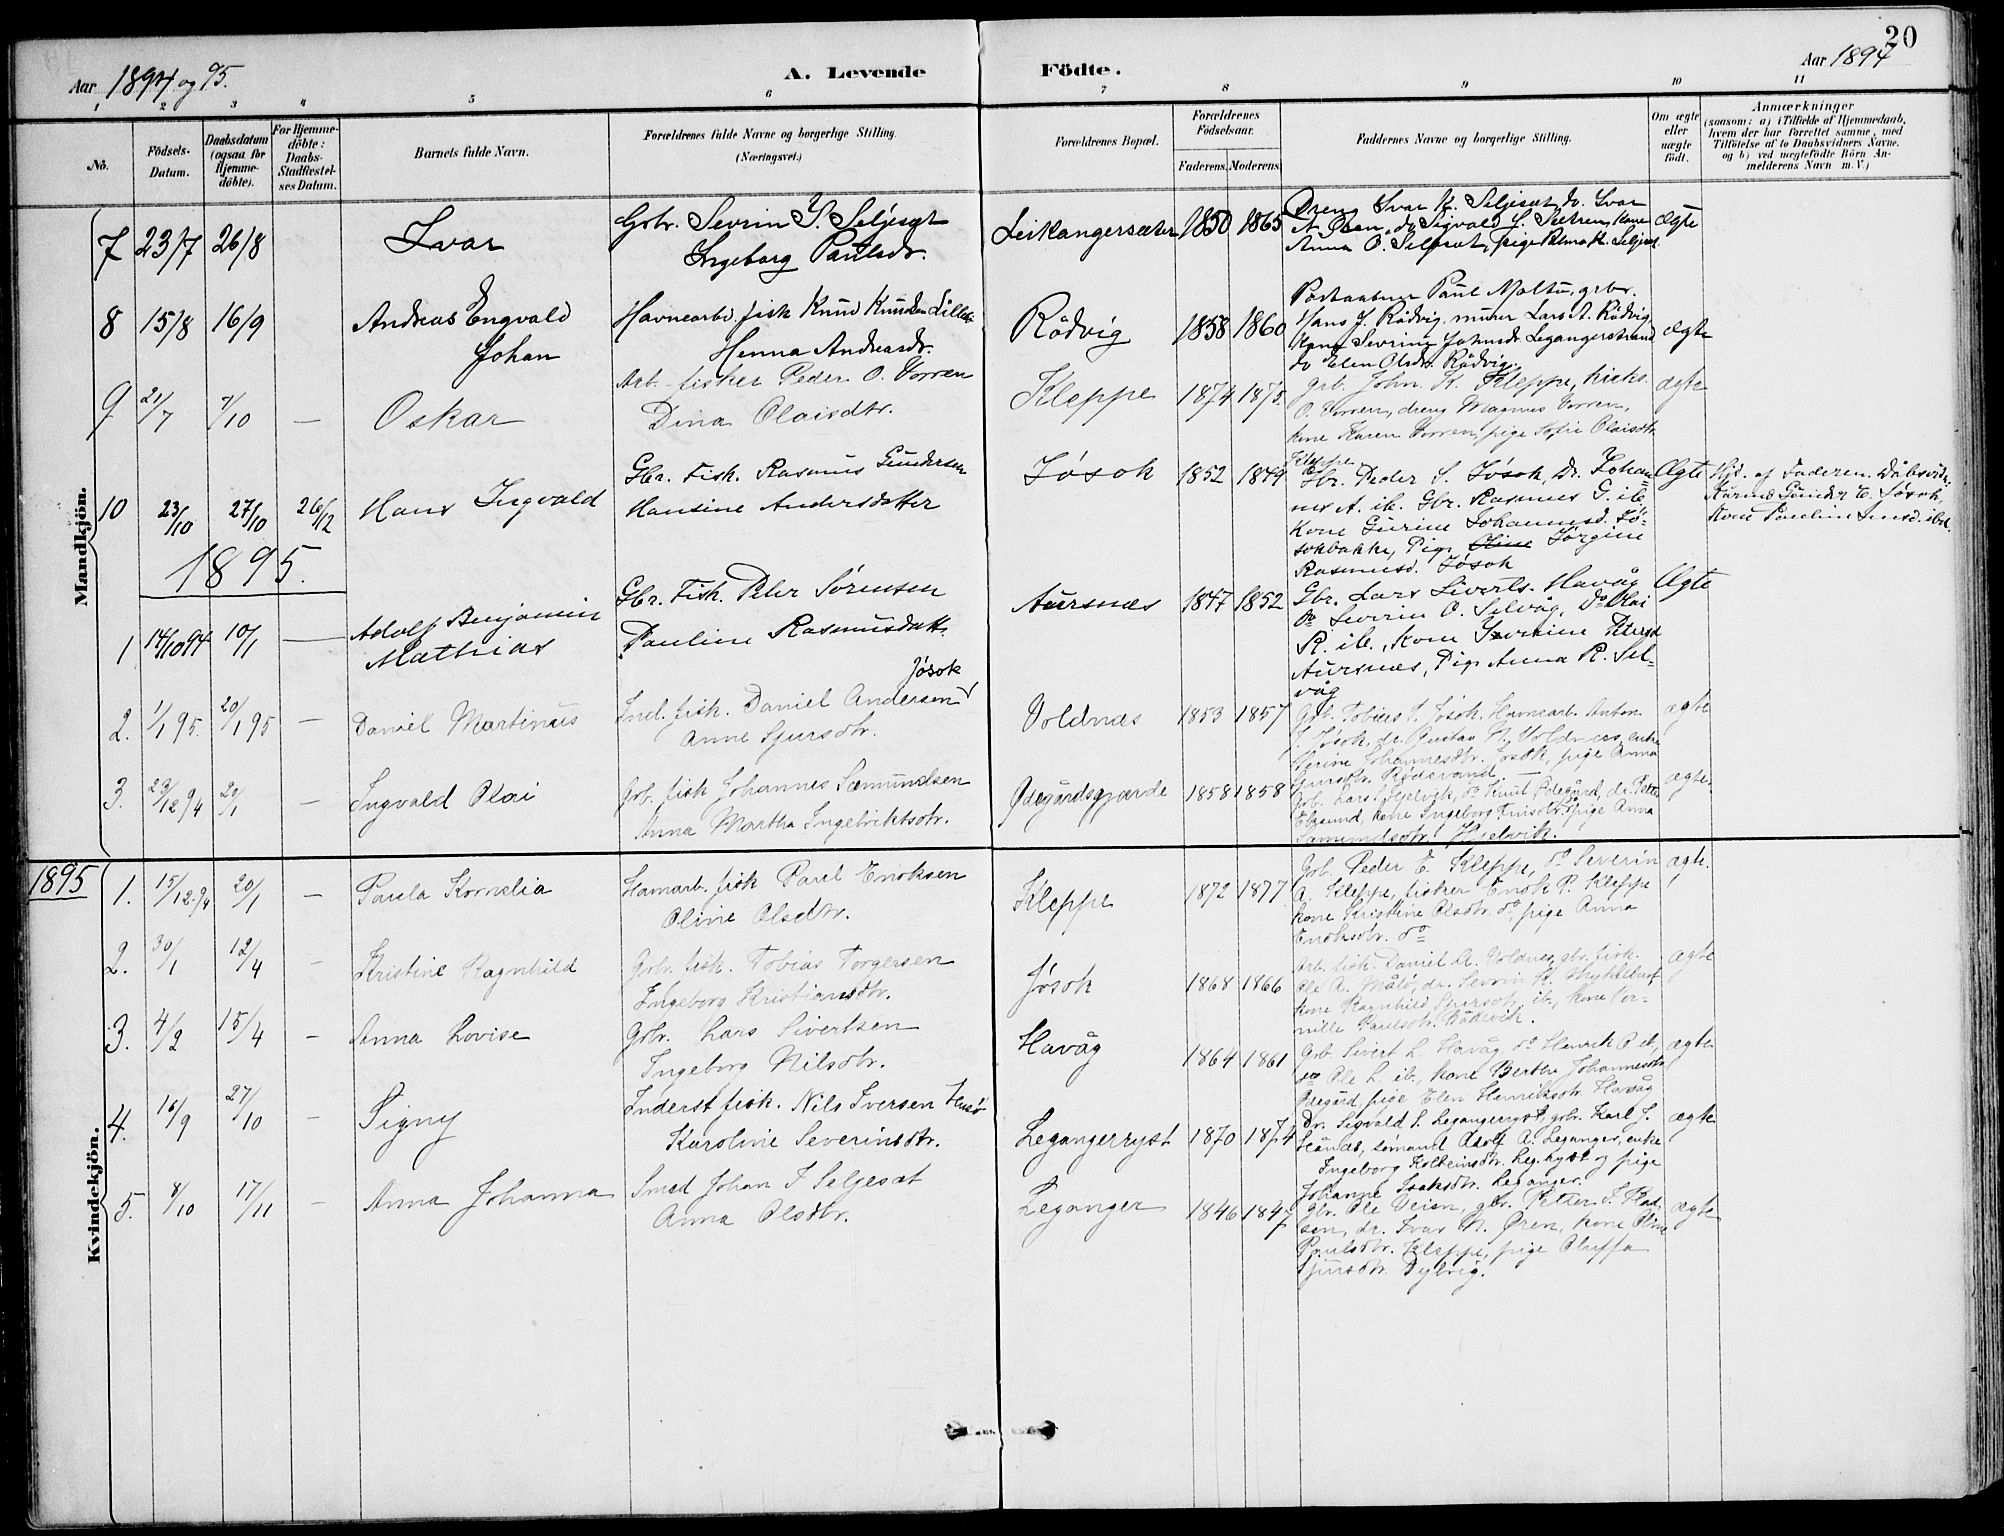 20
Aar 1894 og 95.
A. Levende Födte.
Aar 1894
1 2 3 4 5 6 7 8 9 10 11
No.
Födsels-Datum.
Daabsdatum (ogsaa for Hjemmedöbte).
For Hjemmedöbte: Daabs-Stadfæstelses Datum.
Barnets fulde Navn.
Forældrenes fulde Navne og borgerlige Stilling. (Næringsvei.)
Forældrenes Bopæl.
Forældrenes Födselsaar.
Faderens. Moderens.
Faddernes Navne og borgerlige Stilling.
Om ægte eller uægte födt.
Anmærkninger
(saasom: a) i Tilfælde af Hjemmedaab, hvem der har forrettet samme, med Tilföielse af to Daabsvidners Navne, og b) ved uægtefödte Börn Anmelderens Navn m. V.)
Mandkjön.
7 23/7 26/8 Ivar
Gbr. Sevrin I. Seljesæt
Ingeborg Paulsdr.
Leikangersæter 1850 1865
Dreng Ivar K. Seljesæt do. Ivar
N. Øren, do Sigvald S. Sætren, Kone
Anna O. Seljesæt, pige
ægte
8 15/8 16/9 Andreas Engvald
Johan
Havnearb. fisk Knud Knudsen
Henna Andreasdr.
Rödvig 1858 1860
Paul Moltu, grbr.
Hans J. Rödvig, murer Lars A. Rödvig,
Kone Sevrine Johnsdr. Legangerstrand
do Elen Olsdr. Rödvig.
ægte
9 21/7 7/10 — Oskar
Arb. fisker Peder O. Vorren
Dina Olaisdtr.
Kleppe 1874 1875.
grb. John K. Kleppe,
O. Vorren, dreng Magnus Vorren,
kone Karen Vorren, pige Sofie Olaisdtr.
Kleppe
ægte
10 23/10 27/10 26/12 Hans Ingvald
Gbr. Fisk. Rasmus Gundersen
Hansine Andersdatter
Jøsok 1852 1849
Gbr. Peder S. Jösok, Dr. Johan-
nes A. ib. Gbr. Rasmus G. ib
Kone Gurine Johannesd. Jö-
sokbakke, Pige Oline Jørgine
Rasmusd. Jösok
Ægte
Hjd. af Faderen. Daabsvidn.
Gunder E. Jøsok,
Kone Pauline ibd.
1895.
1 14/10 94 10/1 — Adolf Benjamin
Mathias
Gbr. Fisk. Peter Sørensen
Pauline Rasmusdatt.
Aursnæs 1847 1852
Gbr. Lars Siverts. Havåg
Do Severin O. Selvåg, Do Olai
R. ib., Kone Severine Petersd
Aursnæs, Pige Anna R. Sel-
våg
Ægte
2. 1/1 95. 20/1 95 — Daniel Martinus
Jøsok
Ind. fisk. Daniel Andersen
Anne Sjursdtr.
Voldnæs 1853 1857
Grb. Tobias T. Jøsok, Havnearb. Anton
J. Jøsok, dr. Gustav N. Voldnæs, enke
Johannesdtr. Jøsok, pige Anna
Sjursdtr. Rødsvand
ægte
3. 29/12 94 20/1 — Ingvald Olai
Grb. fisk Johannes Sæmundsen
Anna Martha Ingebriktsdtr.
Ødegårdsgjærde 1858 1858
Grb. Lars Hjelvik, do Knut Ødegård, dr. Petter
kone Ingeborg pige Anna
Sæmundsdtr. Hjelvik.
ægte.
1895
Kvindekjön.
1. 15/12 94 20/1 — Paula Kornelia
Havnarb. fisk Paul Enoksen
Oline Olsdtr.
Kleppe 1872 1877
Grb. Peder E. Kleppe, do Severin
A. Kleppe, fisker Enok P. Kleppe
kone Kristine Olsdtr. do, pige Anna
Enoksdtr. do
ægte.
2. 30/1 12/4 — Kristine Ragnhild
Grbr. fisk. Tobias Torgersen
Ingeborg Kristiansdtr.
Jøsok 1868 1866
Arb. fisk. Daniel A. Voldnes, gbr. fisk.
Ole A. Målø, dr. Sevrin K. Myklebust
kone Ragnhild Sjursdtr. ib., kone Per-
nille Paulsdtr. Bödevik.
ægte
3. 4/2 15/4 — Anna Lovise
Grbr. Lars Sivertsen
Ingeborg Nilsdtr.
Havåg 1864 1861
Grb. Sivert L. Havåg, do Henrik P. ib,
do Ole L. ib., kone Berthe Johannesdtr
Ødegård, pige Elen Henriksdtr. Havåg
ægte
4. 16/9 27/10 — Signy
Inderst fisk. Nils Iversen Husø
Karoline Severinsdtr.
Legangerryst 1870 1874
Dr. Sigvald S. Legangerryst, grbr. Karl J.
sømand Adolf A. Leganger, enke
Ingeborg Kolbeinsdtr. Leg.ryst og pige
Johanne Isaksdtr. Leganger.
ægte
5. 8/10 17/11 — Anna Johanna
Smed Johan I Seljesæt
Anna Olsdtr.
Leganger 1846 1847
Gbr. Ole Veien, gbr. Petter I.
dr. Ivar N. Øren, kone Oline
Paulsdtr. Kleppe, pige Oluffa
Sjursdtr. Dylvig.
ægte